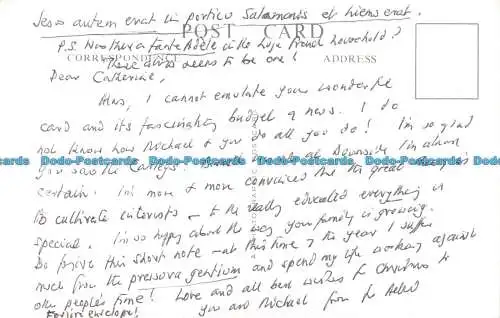 Jesus autem erat in portico Salamonis et hiems erat.
POST CARD
P.S. Was there a Tante Adèle in the Luje French household?
CORRESPONDENCE
ADDRESS
There always seems to be one!
Dear Catherine,
Alas, I cannot emulate your wonderful
card and its fascinating budget of news. I do
not know how Michael & you do all you do! I'm so glad
you saw the
at Downside I'm almost
Dodo-Postcards Dodo-Postcards Dodo-Postcards Dodo-Postcards Dodo-Postcards
certain. I'm more & more convinced that the great
is
to cultivate interests — to the really educated everything is
special. I'm so happy about the way your family is growing.
Do forgive this short note — at this time of the year I suffer
much from the pressura gentium and spend my life working against
other people's time! Love and all best wishes for Christmas to
you and Michael from
envelope!